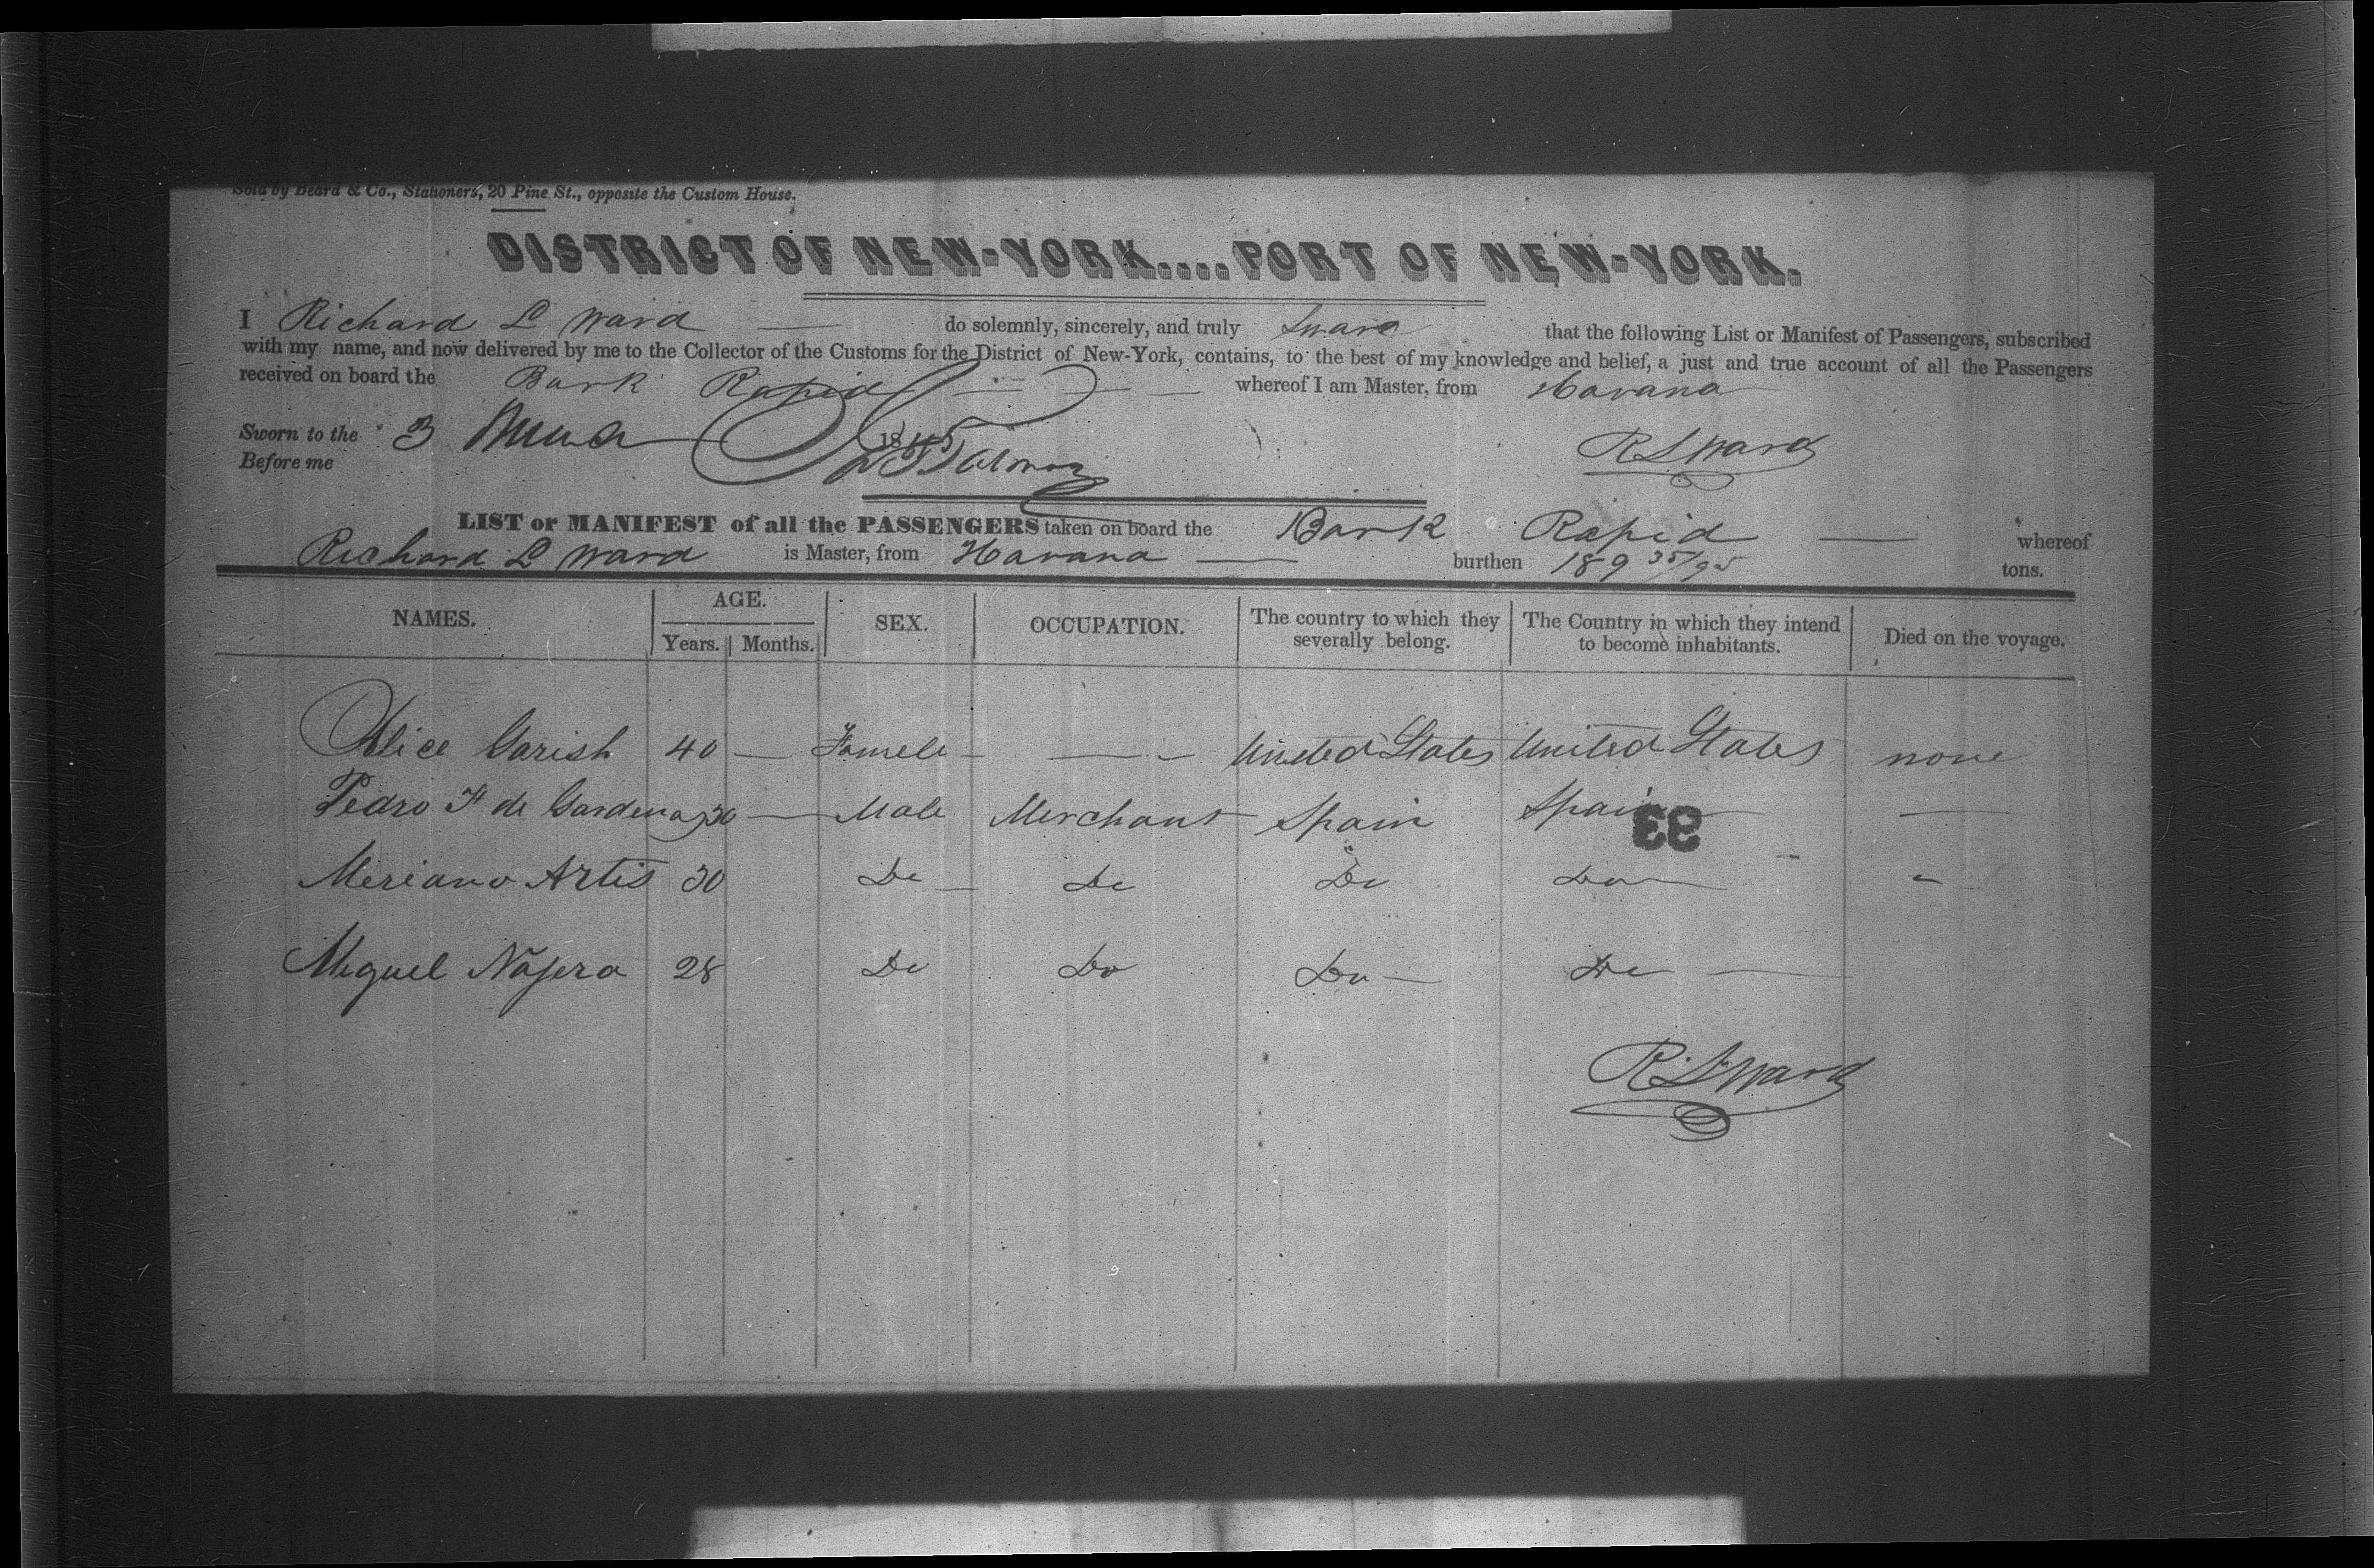 Sold by Beard & Co., Stationers, 20 Pine St., opposite the Custom House.
DISTRICT OF NEW-YORK....PORT OF NEW-YORK.
I Richard L Ward — do solemnly, sincerely, and truly Swara that the following List or Manifest of Passengers, subscribed
with my name, and now delivered by me to the Collector of the Customs for the District of New-York, contains, to the best of my knowledge and belief, a just and true account of all the Passengers
received on board the Bark Rapid — — — whereof I am Master, from Havana
Sworn to the 3 1845
Before me R L Ward
LIST or MANIFEST of all the PASSENGERS taken on board the Bark Rapid — whereof
Richard L Ward is Master, from Havana — burthen 189 35/95 tons.
NAMES. AGE. SEX. OCCUPATION. The country to which they severally belong. The Country in which they intend to become inhabitants. Died on the voyage.
Years. Months.
Alice Garish 40 — Female — — - United States United States none
Pedro F de Gardena 30 — Male Merchant Spain Spain —
33
Meriano Artis 30 Do — Do Do Do — -
Miguel Najera 28 Do Do Do — Do —
R L Ward